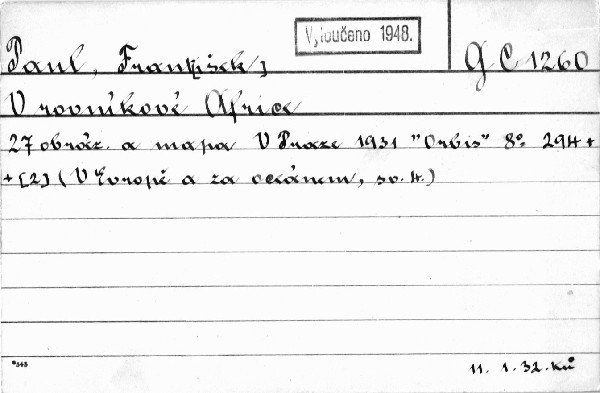 Vyloučeno 1948.
Paul, František] G C 1260
V rovníkové Africe
27 obráz. a mapa V Praze 1931 "Orbis" 8° 294 +
+ [2] (V Evropě a za oceánem, sv. 4.)
11. 1. 32. Ků